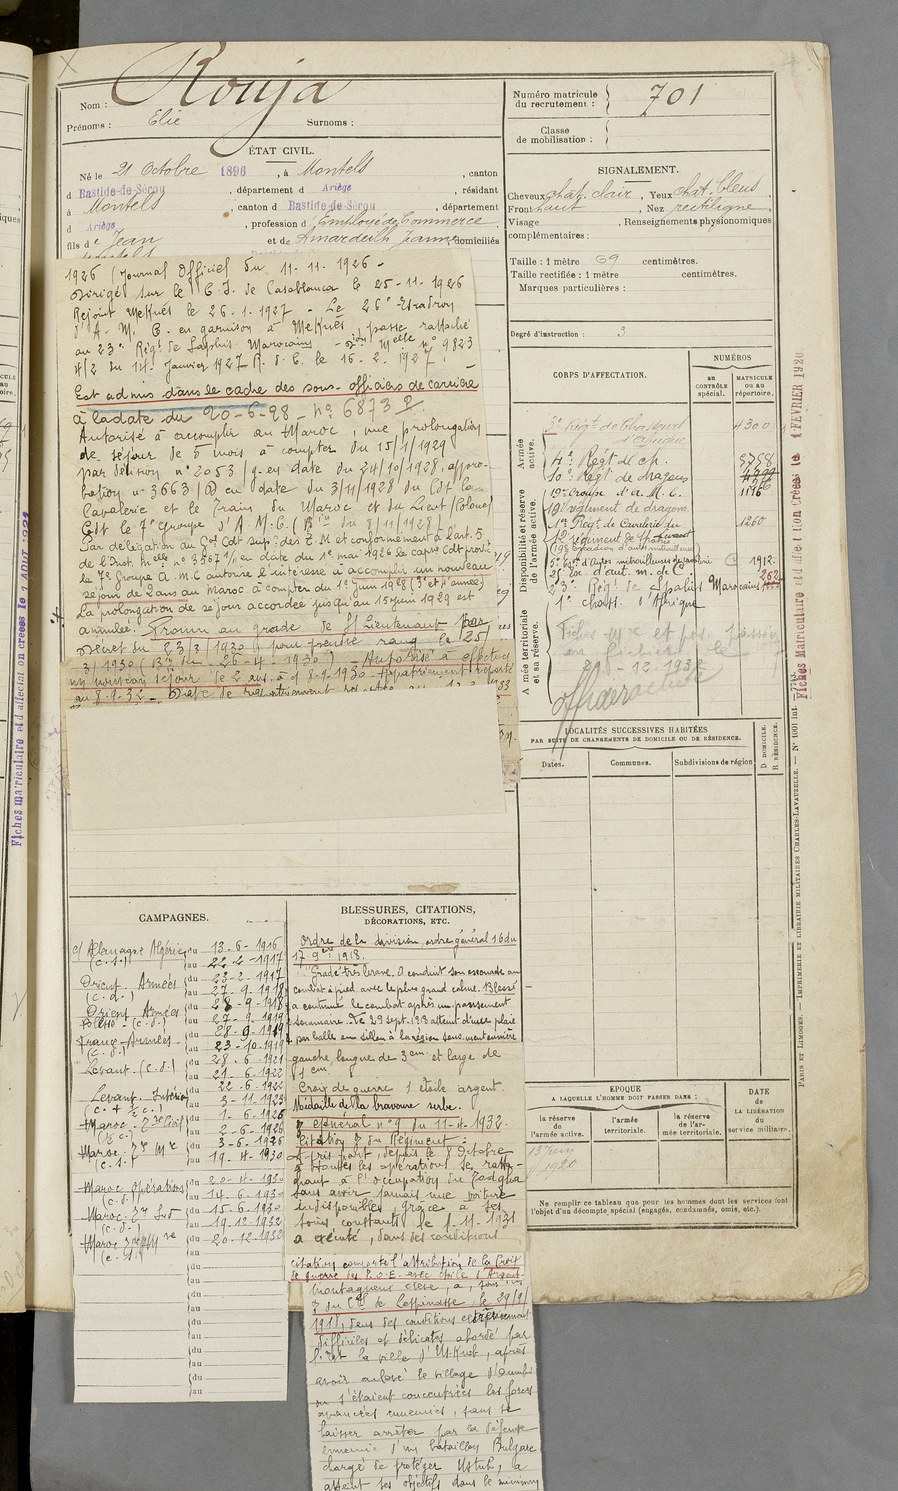 Nom : Rouja
Prénoms : Elie Surnoms :
Numéro matricule du recrutement : 701
Classe de mobilisation :
ÉTAT CIVIL.
Né le 21 Octobre 1896, à Montels, canton
d Bastide-de-Sérou, département d Ariège, résidant
à Montels, canton d Bastide-de-Sérou, département
d Ariège, profession d'Employé de Commerce
fils de Jean et de Amardeilh Jeanne domiciliés
SIGNALEMENT.
Cheveux chat. clair, Yeux chat. bleus
Front haut, Nez rectiligne,
Visage , Renseignements physionomiques
complémentaires :
Taille : 1 mètre 69 centimètres.
Taille rectifiée : 1 mètre centimètres.
Marques particulières :
Degré d'instruction : 3
1926 (Journal Officiel du 11-11-1926 -
Dirigé sur le C. I. de Casablanca le 25-11-1926
Rejoint Meknès le 26-1-1927 - Le 26e Escadron
d'A. M. C. en garnison à Meknès, passe rattaché
au 23e Régt de Saphis Marocains - Don Melle n° 9823
4/2 du 14 Janvier 1927 R. d. C. le 16-2-1927.
Est admis dans le cadre des sous-officiers de carrière
à la date du 20-6-28 - N° 6873 P.
Autorisé à accomplir au Maroc, une prolongation
de séjour de 5 mois à compter du 15/1/1929
par décision n° 2053/9 en date du 24/10/1928, appro-
bation n° 3663/ en date du 3/11/1928 du Cdt la
Cavalerie et le Train du Maroc et du Lieut Colonel
Cdt le 7e groupe d'A. M. C. ( du 8/11/1928)
Par délégation du Gal Cdt Sup. des T. M et conformément à l'art. 5
de l'Inst. Melle n° 3567 1/ en date du 1er mai 1926 le capne Cdt provre
le 7e Groupe A. M. C autorise l'intéressé à accomplir un nouveau
séjour de 2 ans au Maroc à compter du 1er Juin 1928 (3e et 4e année)
La prolongation de séjour accordée jusqu'au 15 juin 1929 est
annulée. Promu au grade de St Lieutenant par
Décret du 23/3/1930 pour prendre rang le 25/
3/1930 ( du 26-4-1930) - Autorisé à effectuer
un nouveau séjour de 2 ans à 8-9-1930 - Rapatriement reporté
au 8-9-32 - Date de rapatriement
CORPS D'AFFECTATION.
NUMÉROS
au contrôle spécial.
matricule ou au répertoire.
Armée active.
Disponibilité et réserve de l'armée active.
Armée territoriale et sa réserve.
3e Régt de Chasseurs d'Afrique 4300
4e Régt de ch. 5758
10e Régt de dragons
19e Groupe d'A. M. C. 1176
19e régiment de dragons
1er Régt de Cavalerie du Levant 1260
12e régiment de Spahis
5e de cavalerie C 1912.
25e Esc d'aut. m. de C
23e Régt de Spahis Marocains 262
1er chass. d'Afrique
Fiches Mle et
20-12-1932
LOCALITÉS SUCCESSIVES HABITÉES
PAR SUITE DE CHANGEMENTS DE DOMICILE OU DE RÉSIDENCE.
Dates. Communes. Subdivisions de région
D domicile. R résidence.
CAMPAGNES.
c/ Allemagne Algérie (c.s.) du 13-6-1916
au 22-2-1917
Orient Armées (c.d.) du 23-2-1917
au 27-9-1918
Orient Armées Blessé - (c.d.) du 28-9-1918
au 27-9-1919
France-Armées - (c.d.) du 28-9-1919
au 23-10-1919
Levant (c.d.) du 28-6-1921
au 21-6-1922
Levant Intérieur (c. + ½ c.) du 22-6-1922
au 3-11-1923
Maroc - Zne Civil (½ c.) du 1-6-1926
au 2-6-1926
Maroc - Zne Mre (c.s.) du 3-6-1926
au 19-4-1930
Maroc Opérations (c.d.) du 20-4-1930
au 14-6-1930
Maroc - Zne Sud (c.d.) du 15-6-1930
au 19-12-1932
Maroc (c.s.) du 20-12-1932
au
BLESSURES, CITATIONS,
DÉCORATIONS, ETC.
Ordre de la division, ordre général 16 du
17 9bre 1918.
"Gradé très brave. A conduit son escouade au
combat à pied avec le plus grand calme. Blessé
a continué le combat après un pansement
sommaire. Le 29 sept. 1918 atteint d'une plaie
par balle en sillon à la région sous-mentonnière
gauche, longue de 3 cm et large de
1 cm.
Croix de guerre 1 étoile argent.
Médaille de la bravoure serbe.
O général n° 9 du 11-4-1932.
Citation O du Régiment :
A pris part, depuis le 8 Octobre
à toutes les opérations se ratta-
chant à l'occupation du Tadgha
sans avoir jamais une voiture
indisponible, grâce à ses
soins constants le 1-11-1931
a exécuté, dans des conditions
citation comporte l'attribution de la Croix
de guerre des T. O. E. avec étoile d'Argent.
montagneux élevé, a, sous les
O du Cel de Lespinasse, le 29/9/
1918, dans des conditions extrêmement
difficiles et délicates abordé par
l'Est la ville d'Uskub, après
avoir enlevé le village d'
où s'étaient concentrées les forces
avancées ennemies, sans se
laisser arrêter par la défense
ennemie d'un bataillon Bulgare
chargé de protéger Uskub, a
atteint ses objectifs dans le minimum
EPOQUE
A LAQUELLE L'HOMME DOIT PASSER DANS :
la réserve de l'armée active. l'armée territoriale. la réserve de l'armée territoriale.
DATE de LA LIBÉRATION du service militaire.
13 juin 1920
Ne remplir ce tableau que pour les hommes dont les services font
l'objet d'un décompte spécial (engagés, condamnés, omis, etc.).
PARIS ET LIMOGES. — IMPRIMERIE ET LIBRAIRIE MILITAIRES CHARLES-LAVAUZELLE. — N° 1001 int.
Fiches Matriculaire et d'affectation créées le 1 FEVRIER 1920
Fiches matriculaire et d'affectation créées le 1 AOUT 1921